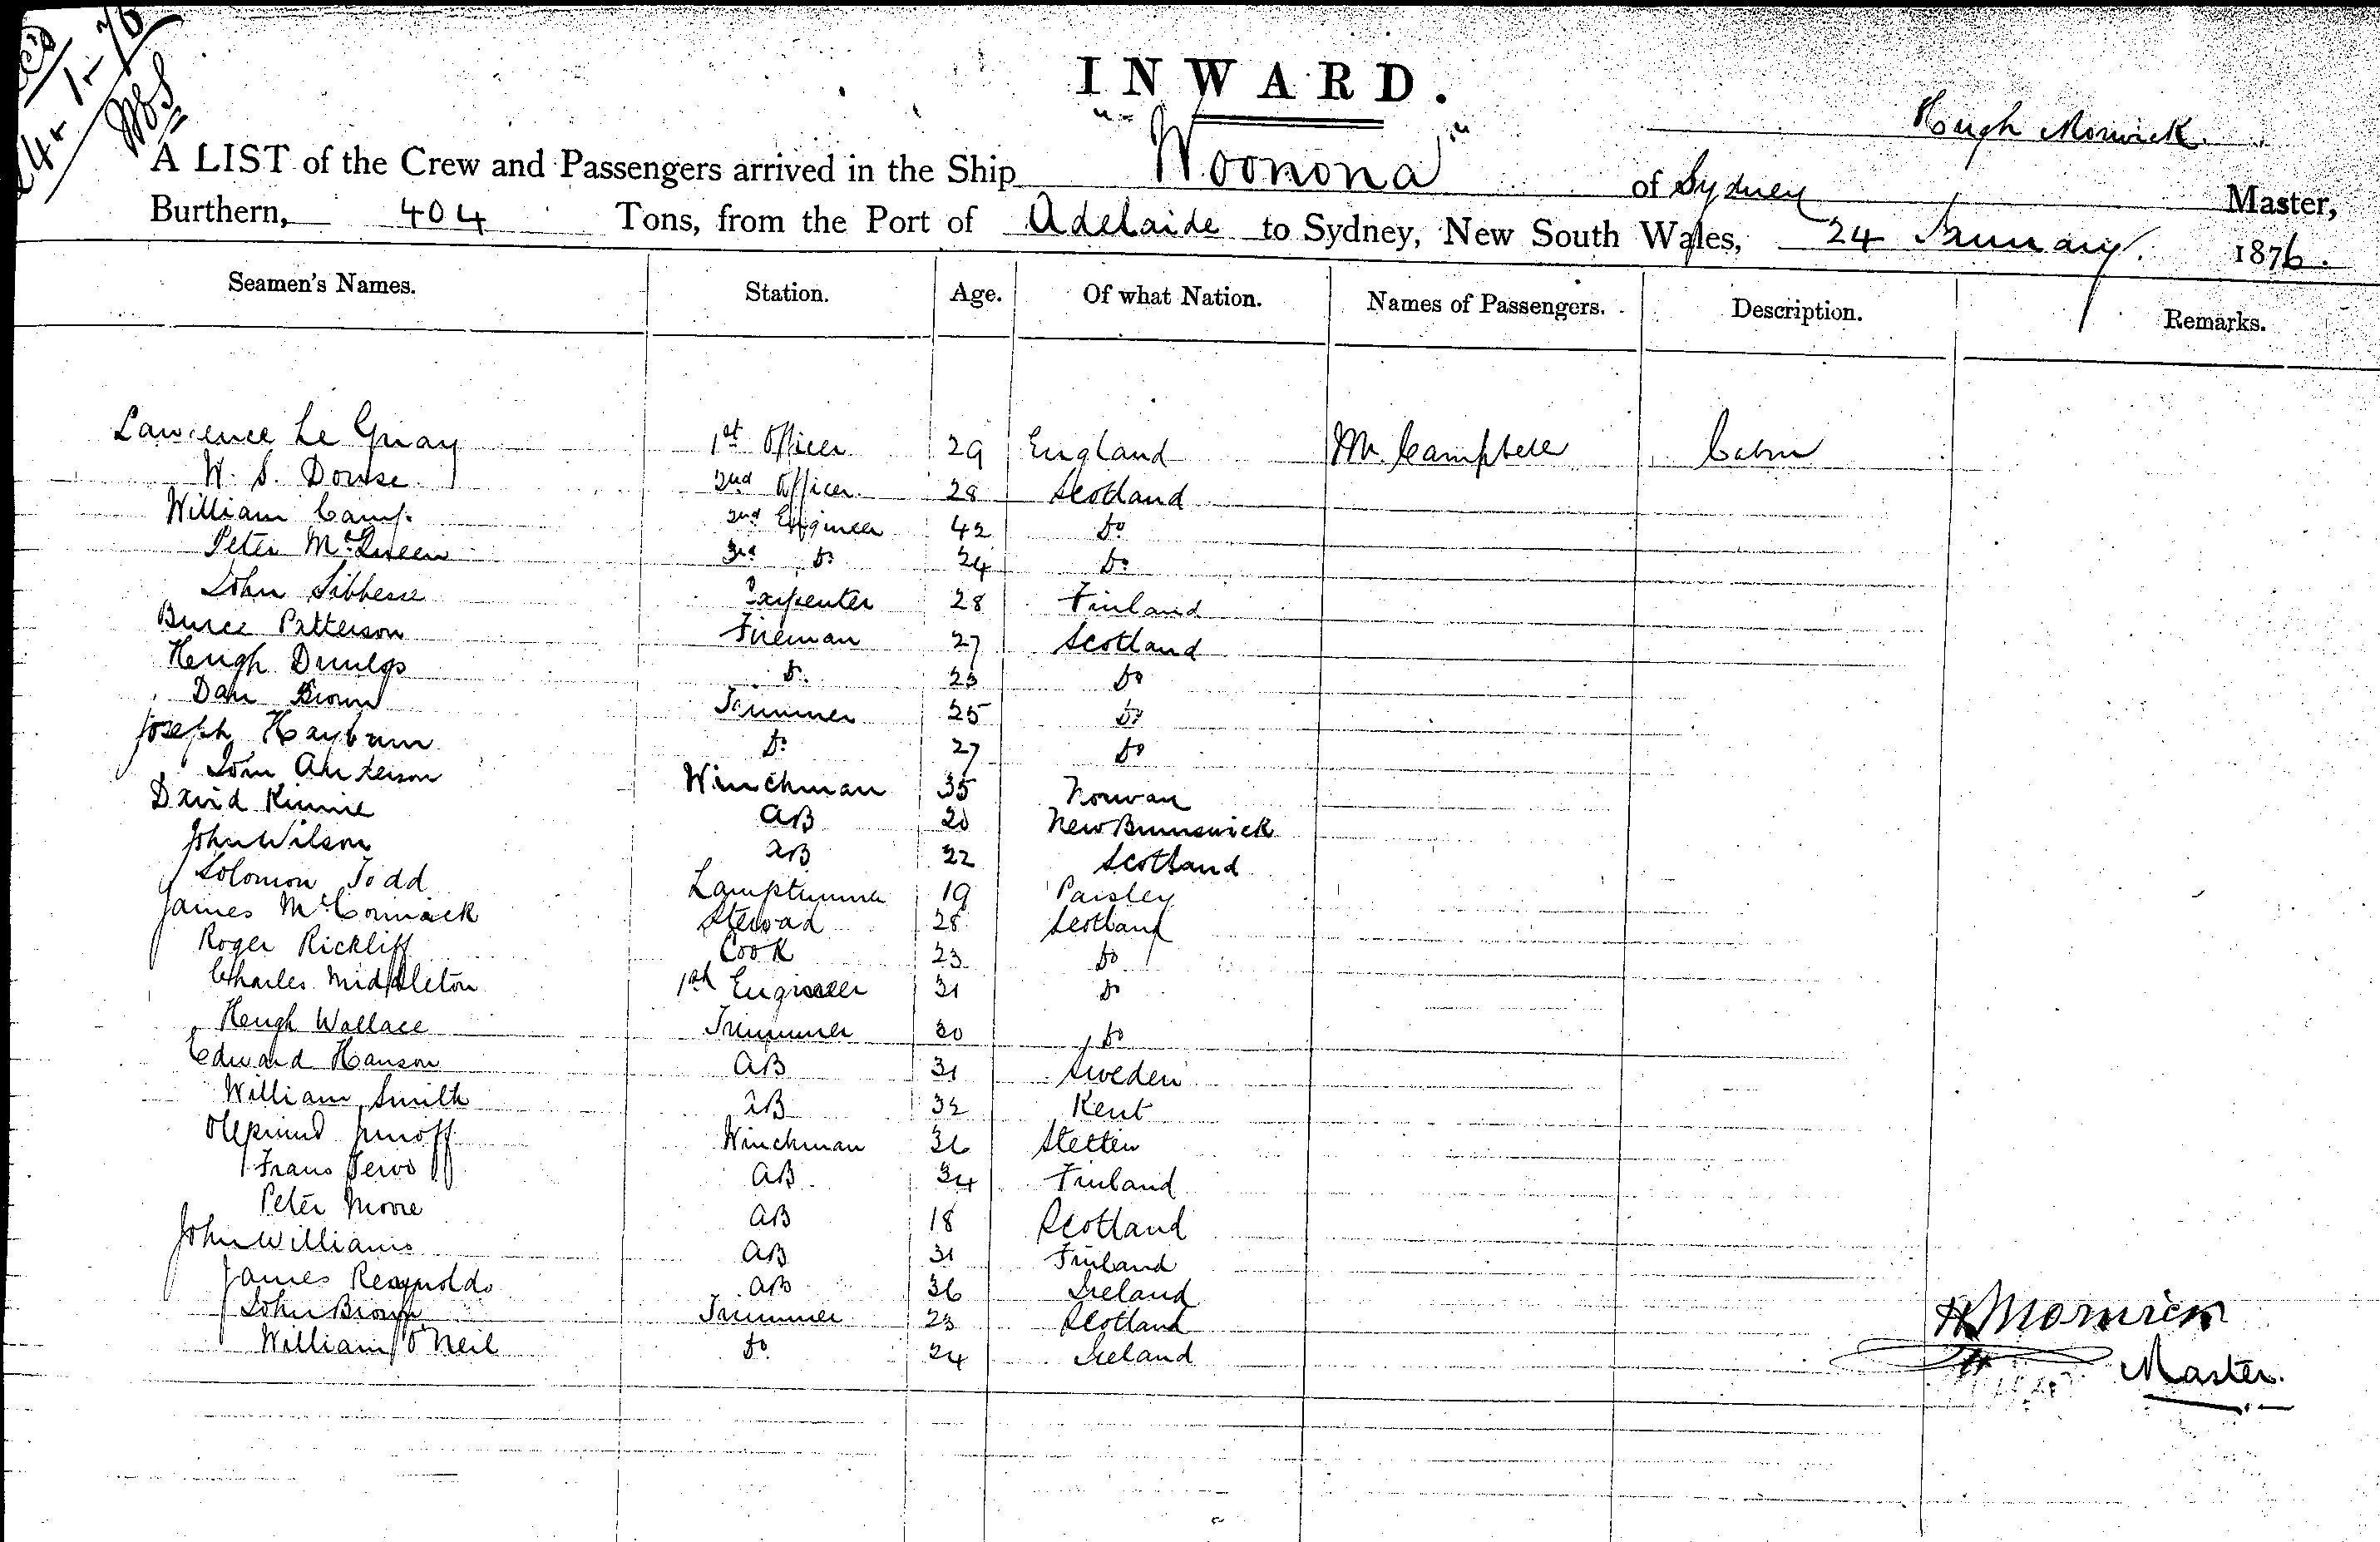 24-1-76
INWARD.
Hugh Morwick
A LIST of the Crew and Passengers arrived in the Ship "Woonona" of Sydney Master,
Burthern, 404 Tons, from the Port of Adelaide to Sydney, New South Wales, 24 January 1876.
Seamen's Names. Station. Age. Of what Nation. Names of Passengers. Description. Remarks.
Lawrence Le Guay 1st Officer 29 England Mr. Campbell Cabin
W. S. Dowse 2nd Officer 28 Scotland
William Camp. 2nd Engineer 42 Do
Peter McQueen 3rd Do 24 Do
John Carpenter 28 Finland
Bruce Patterson Fireman 27 Scotland
Hugh Dunlop Do 23 Do
Dan Brown Trimmer 25 Do
Joseph Hayburn Do 27 Do
John Anderson Winchman 35 Norway
David Kinnie AB 20 New Brunswick
John Wilson AB 22 Scotland
Solomon Todd Lamptrimmer 19 Paisley
James McCormack Steward 28 Scotland
Roger Rickliff Cook 23 Do
Charles Middleton 1st Engineer 31 Do
Hugh Wallace Trimmer 30 Do
Edward Hanson AB 31 Sweden
William Smith AB 32 Kent
Winchman 36 Stettin
Frans Jervo AB 34 Finland
Peter Moore AB 18 Scotland
John Williams AB 31 Finland
James Reaynolds AB 36 Ireland
John Brown Trimmer 23 Scotland
William O'Neil Do 24 Ireland
H Morwick
Master.